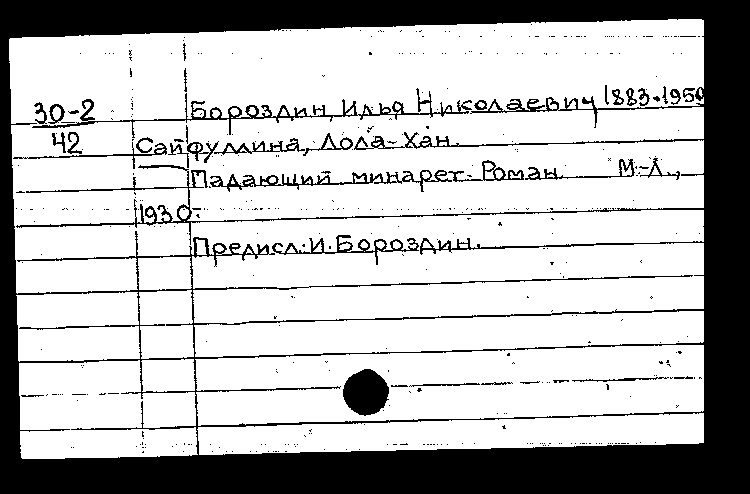 30-2 Бороздин, Илья Николаевич 1883-1959
42 Сайфуллина, Лола-Хан.
Падающий минарет. Роман. М.-Л.,
1930.
Предисл.: И. Бороздин.